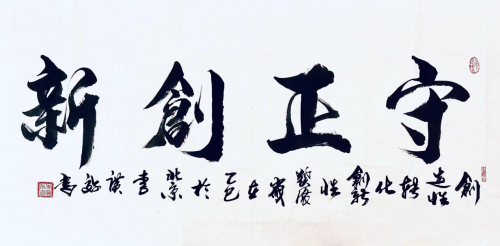 守正創新
創造性轉化創新性發展歲在乙巳於北京書